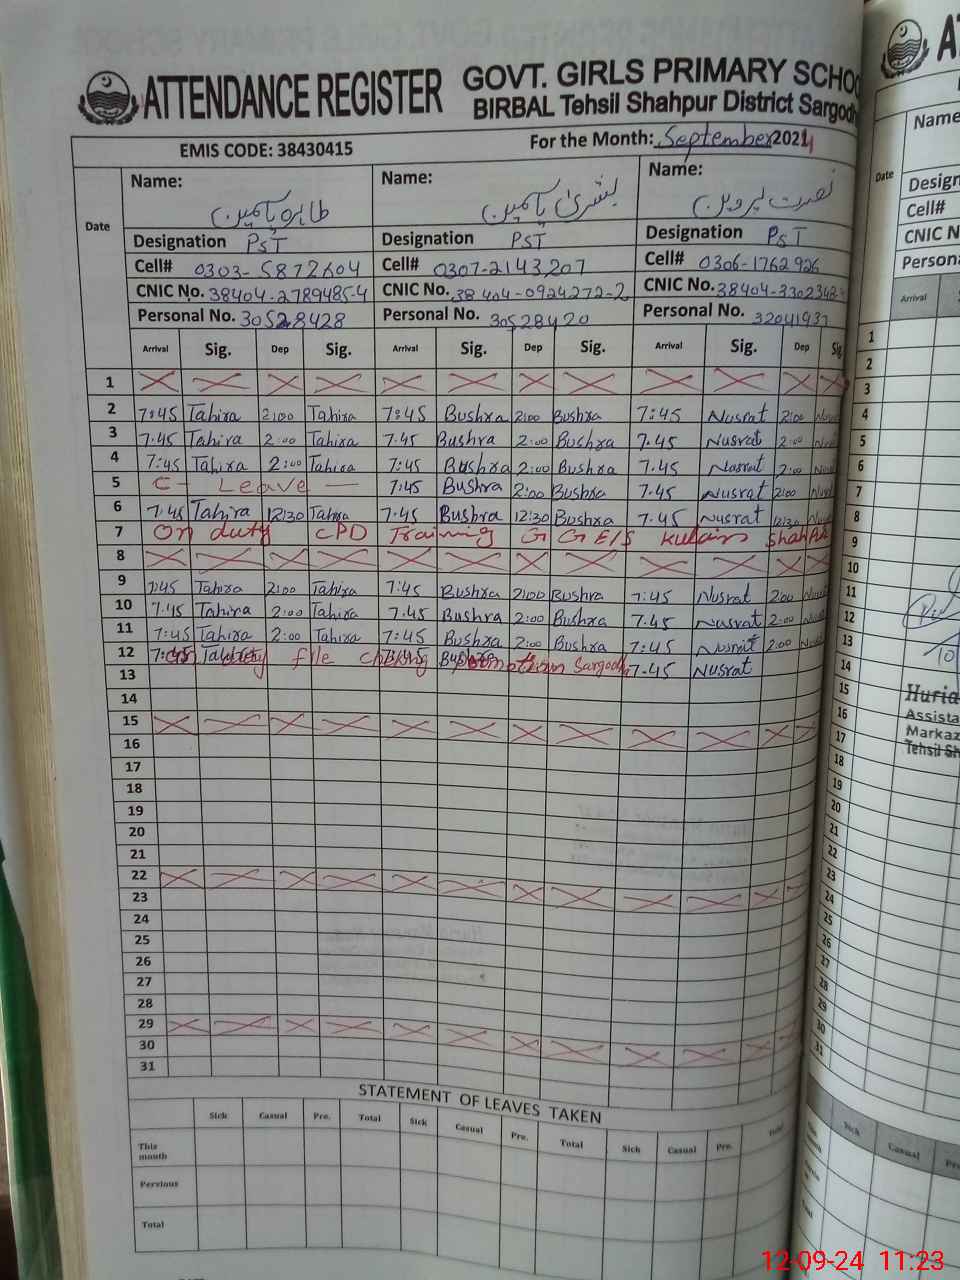 ATTENDANCE REGISTER GOVT. GIRLS PRIMARY SCHOO
BIRBAL Tehsil Shahpur District Sargodh
EMIS CODE: 38430415 For the Month: September 2024
Date Name: Name: Name:
طاہرہ یاسمین بشریٰ یاسمین نصرت پروین
Designation PST Designation PST Designation PST
Cell# 0303-5872604 Cell# 0307-2143207 Cell# 0306-1762926
CNIC No. 38404-2789485-4 CNIC No. 38404-0924272-2 CNIC No. 38404-3302342-
Personal No. 30528428 Personal No. 30528420 Personal No. 32041931
Arrival Sig. Dep Sig. Arrival Sig. Dep Sig. Arrival Sig. Dep Sig
1
2 7:45 Tahira 2:00 Tahira 7:45 Bushra 2:00 Bushra 7:45 Nusrat 2:00
3 7.45 Tahira 2:00 Tahira 7.45 Bushra 2:00 Bushra 7.45 Nusrat 2:00
4 7:45 Tahira 2:00 Tahira 7:45 Bushra 2:00 Bushra 7.45 Nusrat 2:00
5 C- Leave — 7:45 Bushra 2:00 Bushra 7.45 Nusrat 2:00
6 7.45 Tahira 12:30 Tahira 7.45 Bushra 12:30 Bushra 7.45 Nusrat 12:30
7 On duty CPD Training GGE/S
8
9 7:45 Tahira 2:00 Tahira 7:45 Bushra 2:00 Bushra 7:45 Nusrat 2:00
10 7.45 Tahira 2:00 Tahira 7.45 Bushra 2:00 Bushra 7.45 Nusrat 2:00
11 7:45 Tahira 2:00 Tahira 7:45 Bushra 2:00 Bushra 7:45 Nusrat 2:00
12 7:45 file checking 7:45 Sargodh 7.45 Nusrat
13
14
15
16
17
18
19
20
21
22
23
24
25
26
27
28
29
30
31
STATEMENT OF LEAVES TAKEN
Sick Casual Pre. Total Sick Casual Pre. Total Sick Casual Pre.
This month
Pervious
Total
Name
Date Design
Cell#
CNIC N
Persona
Arrival
1
2
3
4
5
6
7
8
9
10
11
12
13
14
15
16
17
18
19
20
21
22
23
24
25
26
27
28
29
30
31
Huria
Assista
Markaz
Tehsil Sh
Sick Casual Pr
12-09-24 11:23